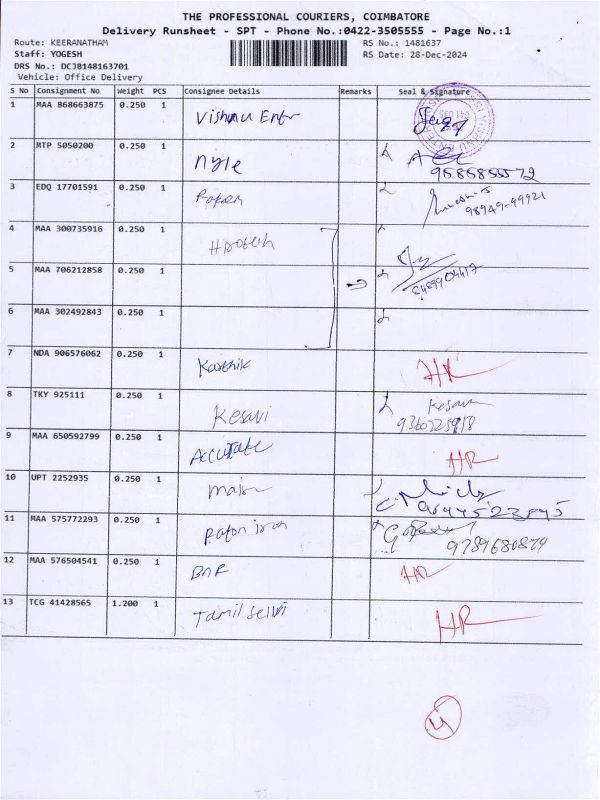 THE PROFESSIONAL COURIERS, COIMBATORE
Delivery Runsheet - SPT - Phone No.:0422-3505555 - Page No.:1
Route: KEERANATHAM
RS No.: 1481637
Staff: YOGESH
RS Date: 28-Dec-2024
DRS No.: DCJB148163701
Vehicle: Office Delivery
S No Consignment No Weight PCS Consignee Details Remarks Seal & Signature
1 MAA 868663875 0.250 1 Vishnu Entr
2 MTP 5050200 0.250 1 nyle
9585855572
3 EDQ 17701591 0.250 1
98949-99921
4 MAA 300735916 0.250 1
5 MAA 706212858 0.250 1
8489904417
6 MAA 302492843 0.250 1
7 NDA 906576062 0.250 1 Karthik HR
8 TKY 925111 0.250 1 Kesavi Kesavi
9360225918
9 MAA 650592799 0.250 1 Accurate HR
10 UPT 2252935 0.250 1
11 MAA 575772293 0.250 1
9789680879
12 MAA 576504541 0.250 1 BNR HR
13 TCG 41428565 1.200 1 Tamil selvi HR
4